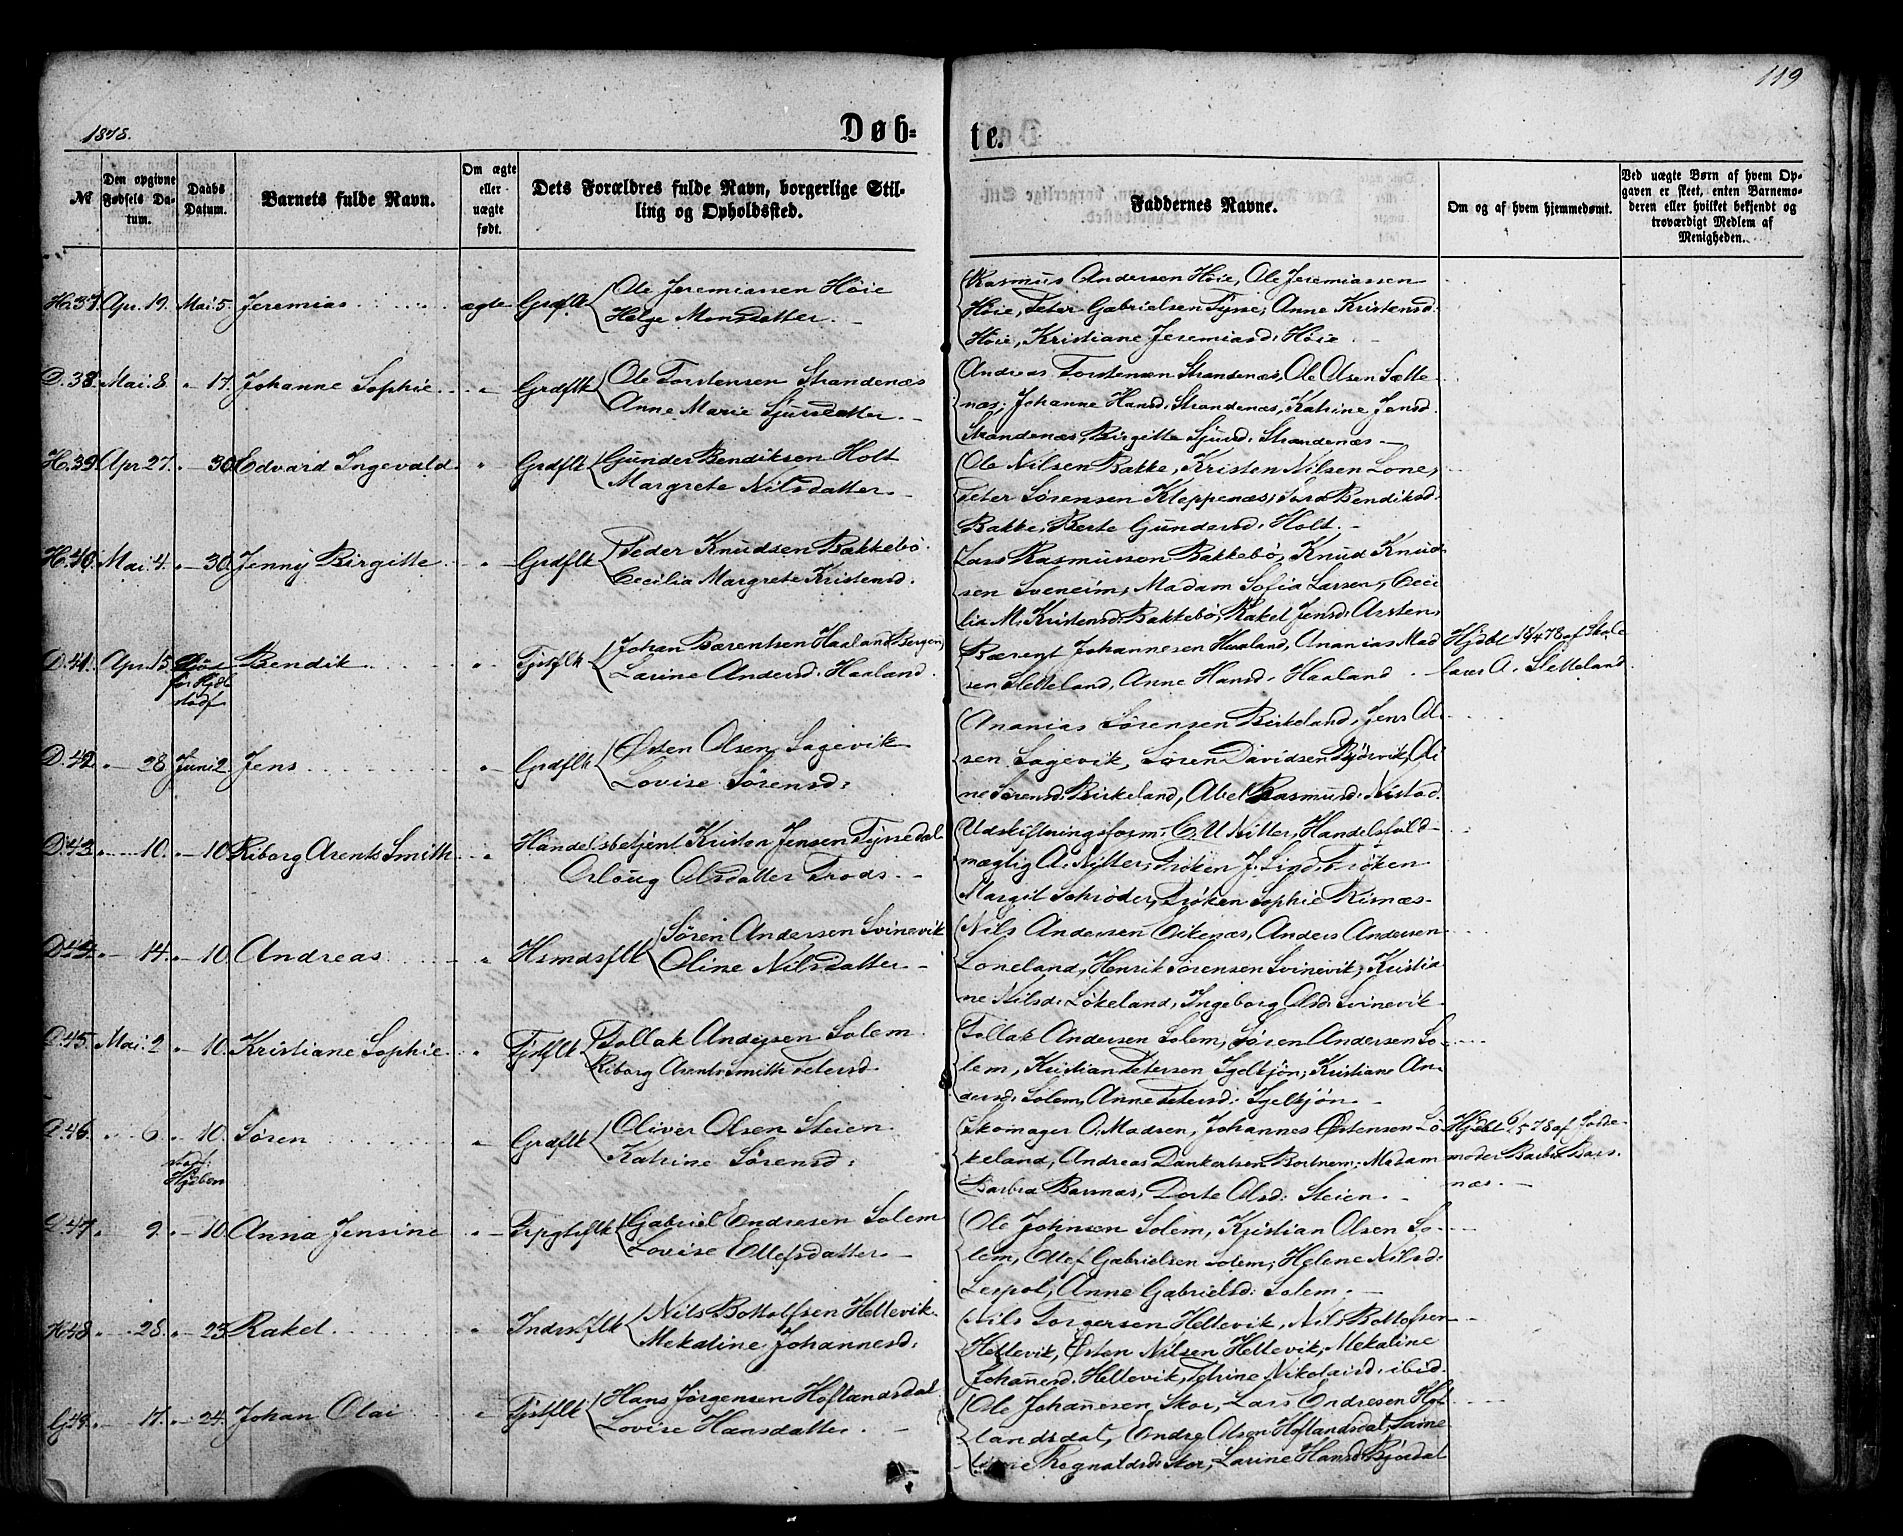 119
1878.
Døb=
te.
№
Den opgivne Fødsels Datum.
Daabs Datum.
Barnets fulde Navn.
Om ægte eller uægte født.
Dets Forældres fulde Navn, borgerlige Stilling og Opholdssted.
Faddernes Navne.
Om og af hvem hjemmedømt.
Ved uægte Børn af hvem Opgaven er skeet, enten Barnemoderen eller hvilket bekjendt og troværdigt Medlem af Menigheden.
H. 37 Apr. 19. Mai 5. Jeremias ægte Grdflk
Ole Jeremiassen Höie
Helge Monsdatter
Rasmus Andersen Höie, Ole Jeremiassen
Höie, Peter Gabrielsen Tysse, Anne Kristensd.
Höie, Kristiane Jeremiasd. Höie
D. 38. Mai 8. " 17. Johanne Sophie " Grdflk
Ole Torstensen Strandenæs
Anne Marie Sjursdatter
Andreas Torstensen Strandenæs, Ole Olsen Sætte
næs, Johanne Hansd. Strandenæs, Katrine Jensd.
Strandenæs, Birgitte Sjursd. Strandenæs
H. 39 Apr 27. " 30 Edvard Ingevald " Grdflk
Gunder Bendiksen Holt
Margrete Nilsdatter
Ole Nilsen Bakke, Kristen Nilsen Lone,
Peter Sørensen Kleppenæs, Sara Bendiksd.
Bakke, Berte Gundersd. Holt.
H. 40. Mai 4. " 30. Jenny Birgitte " Grdflk
Peder Knudsen Bakkebö.
Cecilia Margrete Kristensd.
Lars Rasmussen Bakkebö, Knud Knud
sen Sveneim, Madam Sofia Larsen, Ceci
lia M. Kristensd. Bakkebö, Rakel Jensd.
D. 41. Apr. 15 Bendik " Tjstflk
Johan Bærentsen Haaland (Bergen)
Larine Andersd. Haaland.
Bærent Johannesen Haaland, Ananias Mad
sen Sletteland, Anne Hansd. Haaland
Hjdbt 18/4 78 af Skole
lærer A. Sletteland.
D. 42 " 28 Juni 2. Jens " Grdflk
Østen Olsen Sagevik
Lovise Sörensd:
Ananias Sørensen Birkeland, Jens Ol
sen Sagevik, Søren Davidsen Bjørvik, Oli
ne Sørensd. Birkeland, Abel Rasmusd. Nistad.
D. 43 " 10. " 10 Riborg Arents Smith "
Handelsbetjent Kristen Jensen Tyssedal
Orloug Olsdatter Prods.
Udskiftningsform. C. U. Nitter, Handelsfuld
mægtig A. Nitter, Frøken J. Lind, Frøken
Margit Schrøder, Frøken Sophie Risnæs
D. 44. " 14. " 10. Andreas " Hsmdsflk
Søren Andersen Svinevik
Oline Nilsdatter
Nils Andersen Eikenæs, Anders Andersen
Loneland, Henrik Sørensen Svinevik, Kristia
ne Nilsd. Løkeland, Ingeborg Olsd. Svinevik
D. 45. Mai 2 " 10. Kristiane Sophie " Tjstflk
Tollak Andersen Solem
Riborg Arents Smith Petersd.
Tollak Andersen Solem, Søren Andersen So
lem, Kristian Petersen Igelkjön, Kristiane An
dersd. Solem, Anne Petersd. Igelkjön
D. 46. " 6 " 10. Søren " Grdflk
Oliver Olsen Steien
Katrine Sörensd:
Skomager O. Madsen, Johannes Østensen Lö
keland, Andreas Dankertsen Bortnem, Madam
Barbra Barsnæs, Dorte Olsd: Steien.
Hjdbt 6/5 78 af Jorde
moder Barbra Bars
næs.
D. 47. " 9. " 10. Anna Jensine "
Gabriel Endresen Solem
Lovise Ellefsdatter
Ole Johnsen Solem, Kristian Olsen So
lem, Ellef Gabrielsen Solem, Helene Nilsd:
Anne Gabrielsd: Solem.
H. 48. " 28. " 23. Rakel " Indrstflk
Nils Bottolfsen Hellevik
Mekaline Johannesd:
Nils Torgersen Hellevik, Nils Bottolfsen
Hellevik, Østen Nilsen Hellevik, Mekaline
Johanesd. Hellevik, Petrine Nikolaisd. ibid.
G. 49. " 17. " 24. Johan Olai " Tjstflk
Hans Jørgensen Høflandsdal
Lovise Hansdatter
Ole Johanesen Skor, Lars Endresen Høf
landsdal, Endre Olsen Høflandsdal,
Rognaldsd. Skor, Larine Hansd. Bjordal